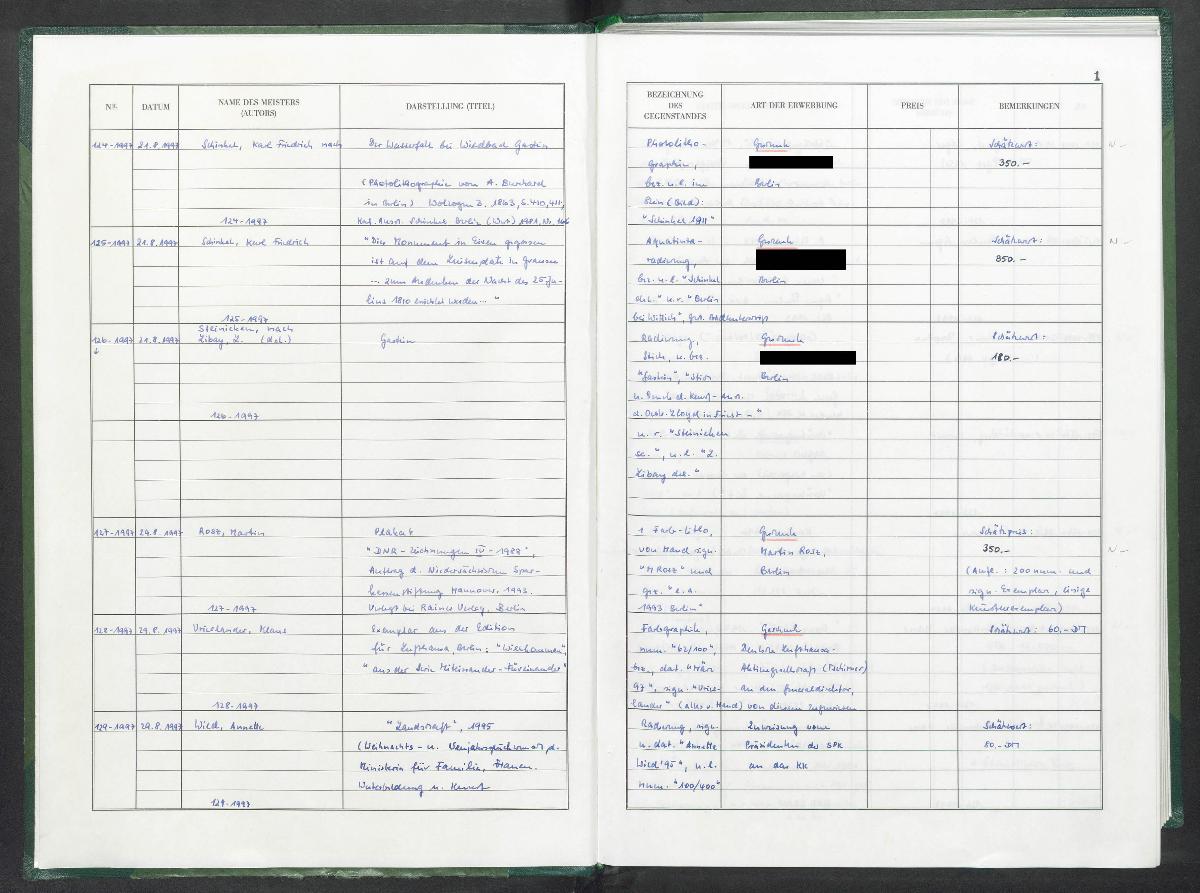 1
Nr. DATUM NAME DES MEISTERS (AUTORS) DARSTELLUNG (TITEL)
BEZEICHNUNG DES GEGENSTANDES ART DER ERWERBUNG PREIS BEMERKUNGEN
124-1997 21.8.1997 Schinkel, Karl Friedrich nach Der Wasserfall bei Wildbad Gastein
(Photolithographie von A. Burchard
in Berlin) Wolzogen 3. 1863, S. 410, 411,
124-1997 Kat. Ausst. Schinkel Berlin (West) 1981, Nr.
Photolitho- Geschenk Schätzwert: N -
graphie, 350.-
bez. u. l. im Berlin
Stein (Bild):
"Schinkel 1811"
125-1997 21.8.1997 Schinkel, Karl Friedrich "Dies Monument in Eisen gegossen
ist auf dem Luisenplatz in Gransee
... zum Andenken der Nacht des 25 Ju-
lius 1810 errichtet worden..."
125-1997
Aquatinta- Geschenk Schätzwert: N -
radierung, 850.-
bez. u. l. "Schinkel Berlin
del." u. r. "Berlin
bei Wittich",
126-1997 21.8.1997 Steinicken, nach
Libay, L. (del.) Gastein
126-1997
Radierung, Geschenk Schätzwert:
Stich, u. bez. 180.-
"Gastein", "Stich Berlin
u. Druck d. Kunst-Anst.
d. Oestr. Lloyd in Triest -"
u. r. "Steinicken
sc.", u. l. "L.
Libay del."
127-1997 29.8.1997 Rosz, Martin Plakat
"DNA-Zeichnungen IV - 1988",
Auftrag d. Niedersächsischen Spar-
kassenstiftung Hannover, 1993.
127-1997 Verlegt bei Rainer Verlag, Berlin
1 Farb-Litho, Geschenk Schätzpreis:
von Hand sign. Martin Rosz, 350.- N -
"M Rosz" und Berlin (Aufl.: 200 num. und
gez. "e.a. sign. Exemplar, einige
1993 Berlin" Künstlerexemplare)
128-1997 29.8.1997 Vrieslander, Klaus Exemplar aus der Edition
für Lufthansa, Berlin: "Willkommen",
"aus der Serie Miteinander-Füreinander"
128-1997
Farbgraphik, Geschenk Schätzwert: 60.- DM
num. "62/100", Deutsche Lufthansa-
bez., dat. "März Aktiengesellschaft (Tschirner)
97", sign. "Vries- an den Generaldirektor,
lander" (alles v. Hand) von diesem zugewiesen
129-1997 29.8.1997 Wild, Annette "Landschaft", 1995
(Weihnachts- u. Neujahrsglückwunsch d.
Ministerin für Familie, Frauen,
Weiterbildung u. Kunst
129-1997
Radierung, sign. Zuweisung vom Schätzwert:
u. dat. "Annette Präsidenten der SPK 80.- DM
Wild '95", u. l. an das KK
num. "100/400"